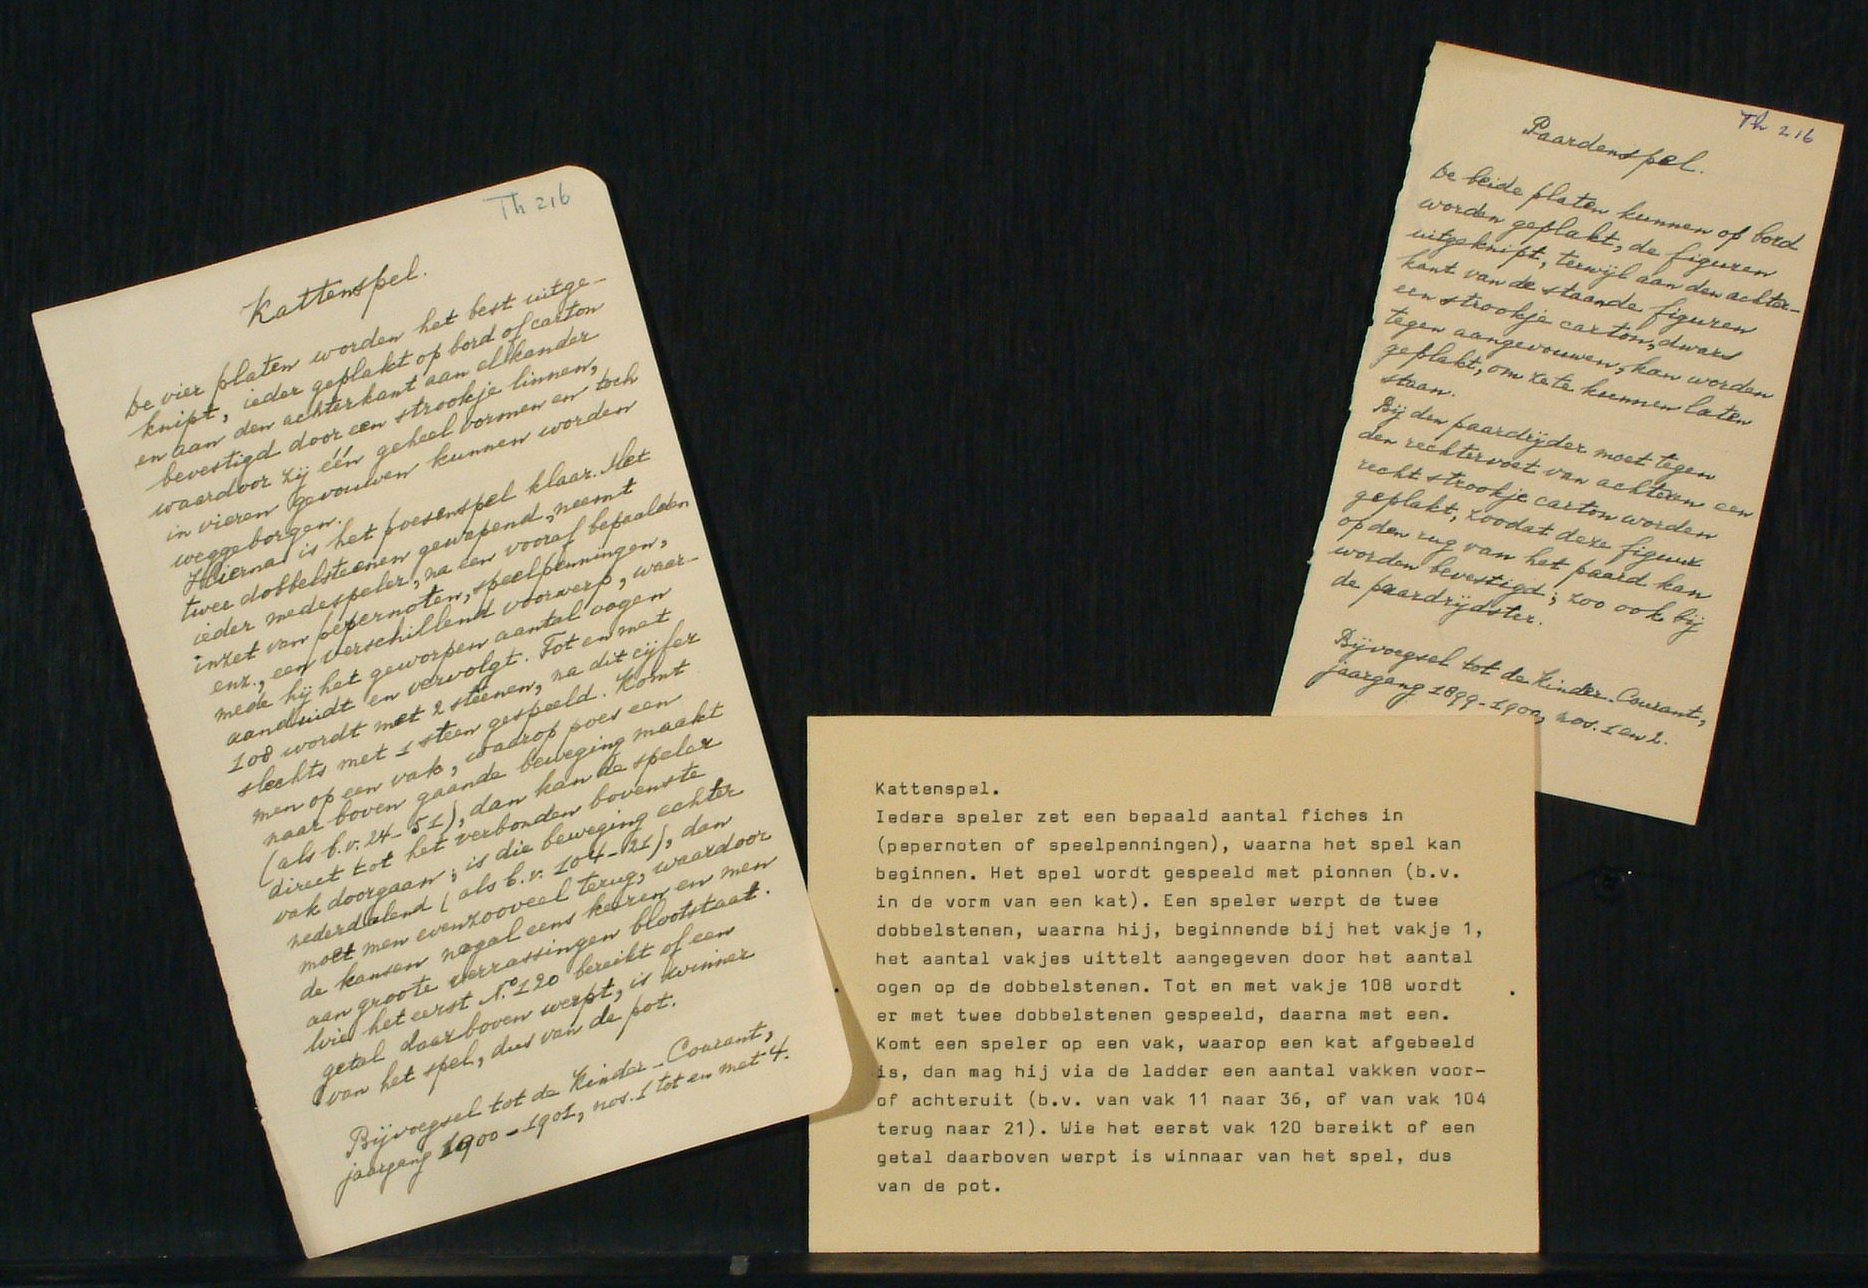 Th 216
Kattenspel.
De vier platen worden het best uitge-
knipt, ieder geplakt op bord of carton
en aan den achterkant aan elkander
bevestigd door een strookje linnen,
waardoor zij één geheel vormen en toch
in vieren gevouwen kunnen worden
weggeborgen.
Hierna is het poesenspel klaar. Met
twee dobbelsteenen gewapend, neemt
ieder medespeler, na een vooraf bepaalden
inzet van pepernoten, speelpenningen,
enz., een verschillend voorwerp, waar-
mede hij het geworpen aantal oogen
aanduidt en vervolgt. Tot en met
108 wordt met 2 steenen, na dit cijfer
slechts met 1 steen gespeeld. Komt
men op een vak, waarop poes een
naar boven gaande beweging maakt
(als b.v. 24-51), dan kan de speler
direct tot het verbonden bovenste
vak doorgaan; is die beweging echter
nederdalend (als b.v. 104-21), dan
moet men evenzooveel terug, waardoor
de kansen nogal eens keeren en men
aan groote verrassingen blootstaat.
Wie het eerst No. 120 bereikt of een
getal daarboven werpt, is winner
van het spel, dus van de pot.
Bijvoegsel tot de Kinder-Courant,
jaargang 1900-1901, nos. 1 tot en met 4.
Th 216
Paardenspel.
De beide platen kunnen op bord
worden geplakt, de figuren
uitgeknipt, terwijl aan den achter-
kant van de staande figuren
een strookje carton, dwars
tegen aangevouwen, kan worden
geplakt, om ze te kunnen laten
staan.
Bij den paardrijder moet tegen
den rechtervoet van achteren een
recht strookje carton worden
geplakt, zoodat deze figuur
op den rug van het paard kan
worden bevestigd; zoo ook bij
de paardrijdster.
Bijvoegsel tot de Kinder-Courant,
jaargang 1899-1900, nos. 1 en 2.
Kattenspel.
Iedere speler zet een bepaald aantal fiches in
(pepernoten of speelpenningen), waarna het spel kan
beginnen. Het spel wordt gespeeld met pionnen (b.v.
in de vorm van een kat). Een speler werpt de twee
dobbelstenen, waarna hij, beginnende bij het vakje 1,
het aantal vakjes uittelt aangegeven door het aantal
ogen op de dobbelstenen. Tot en met vakje 108 wordt
er met twee dobbelstenen gespeeld, daarna met een.
Komt een speler op een vak, waarop een kat afgebeeld
is, dan mag hij via de ladder een aantal vakken voor-
of achteruit (b.v. van vak 11 naar 36, of van vak 104
terug naar 21). Wie het eerst vak 120 bereikt of een
getal daarboven werpt is winnaar van het spel, dus
van de pot.